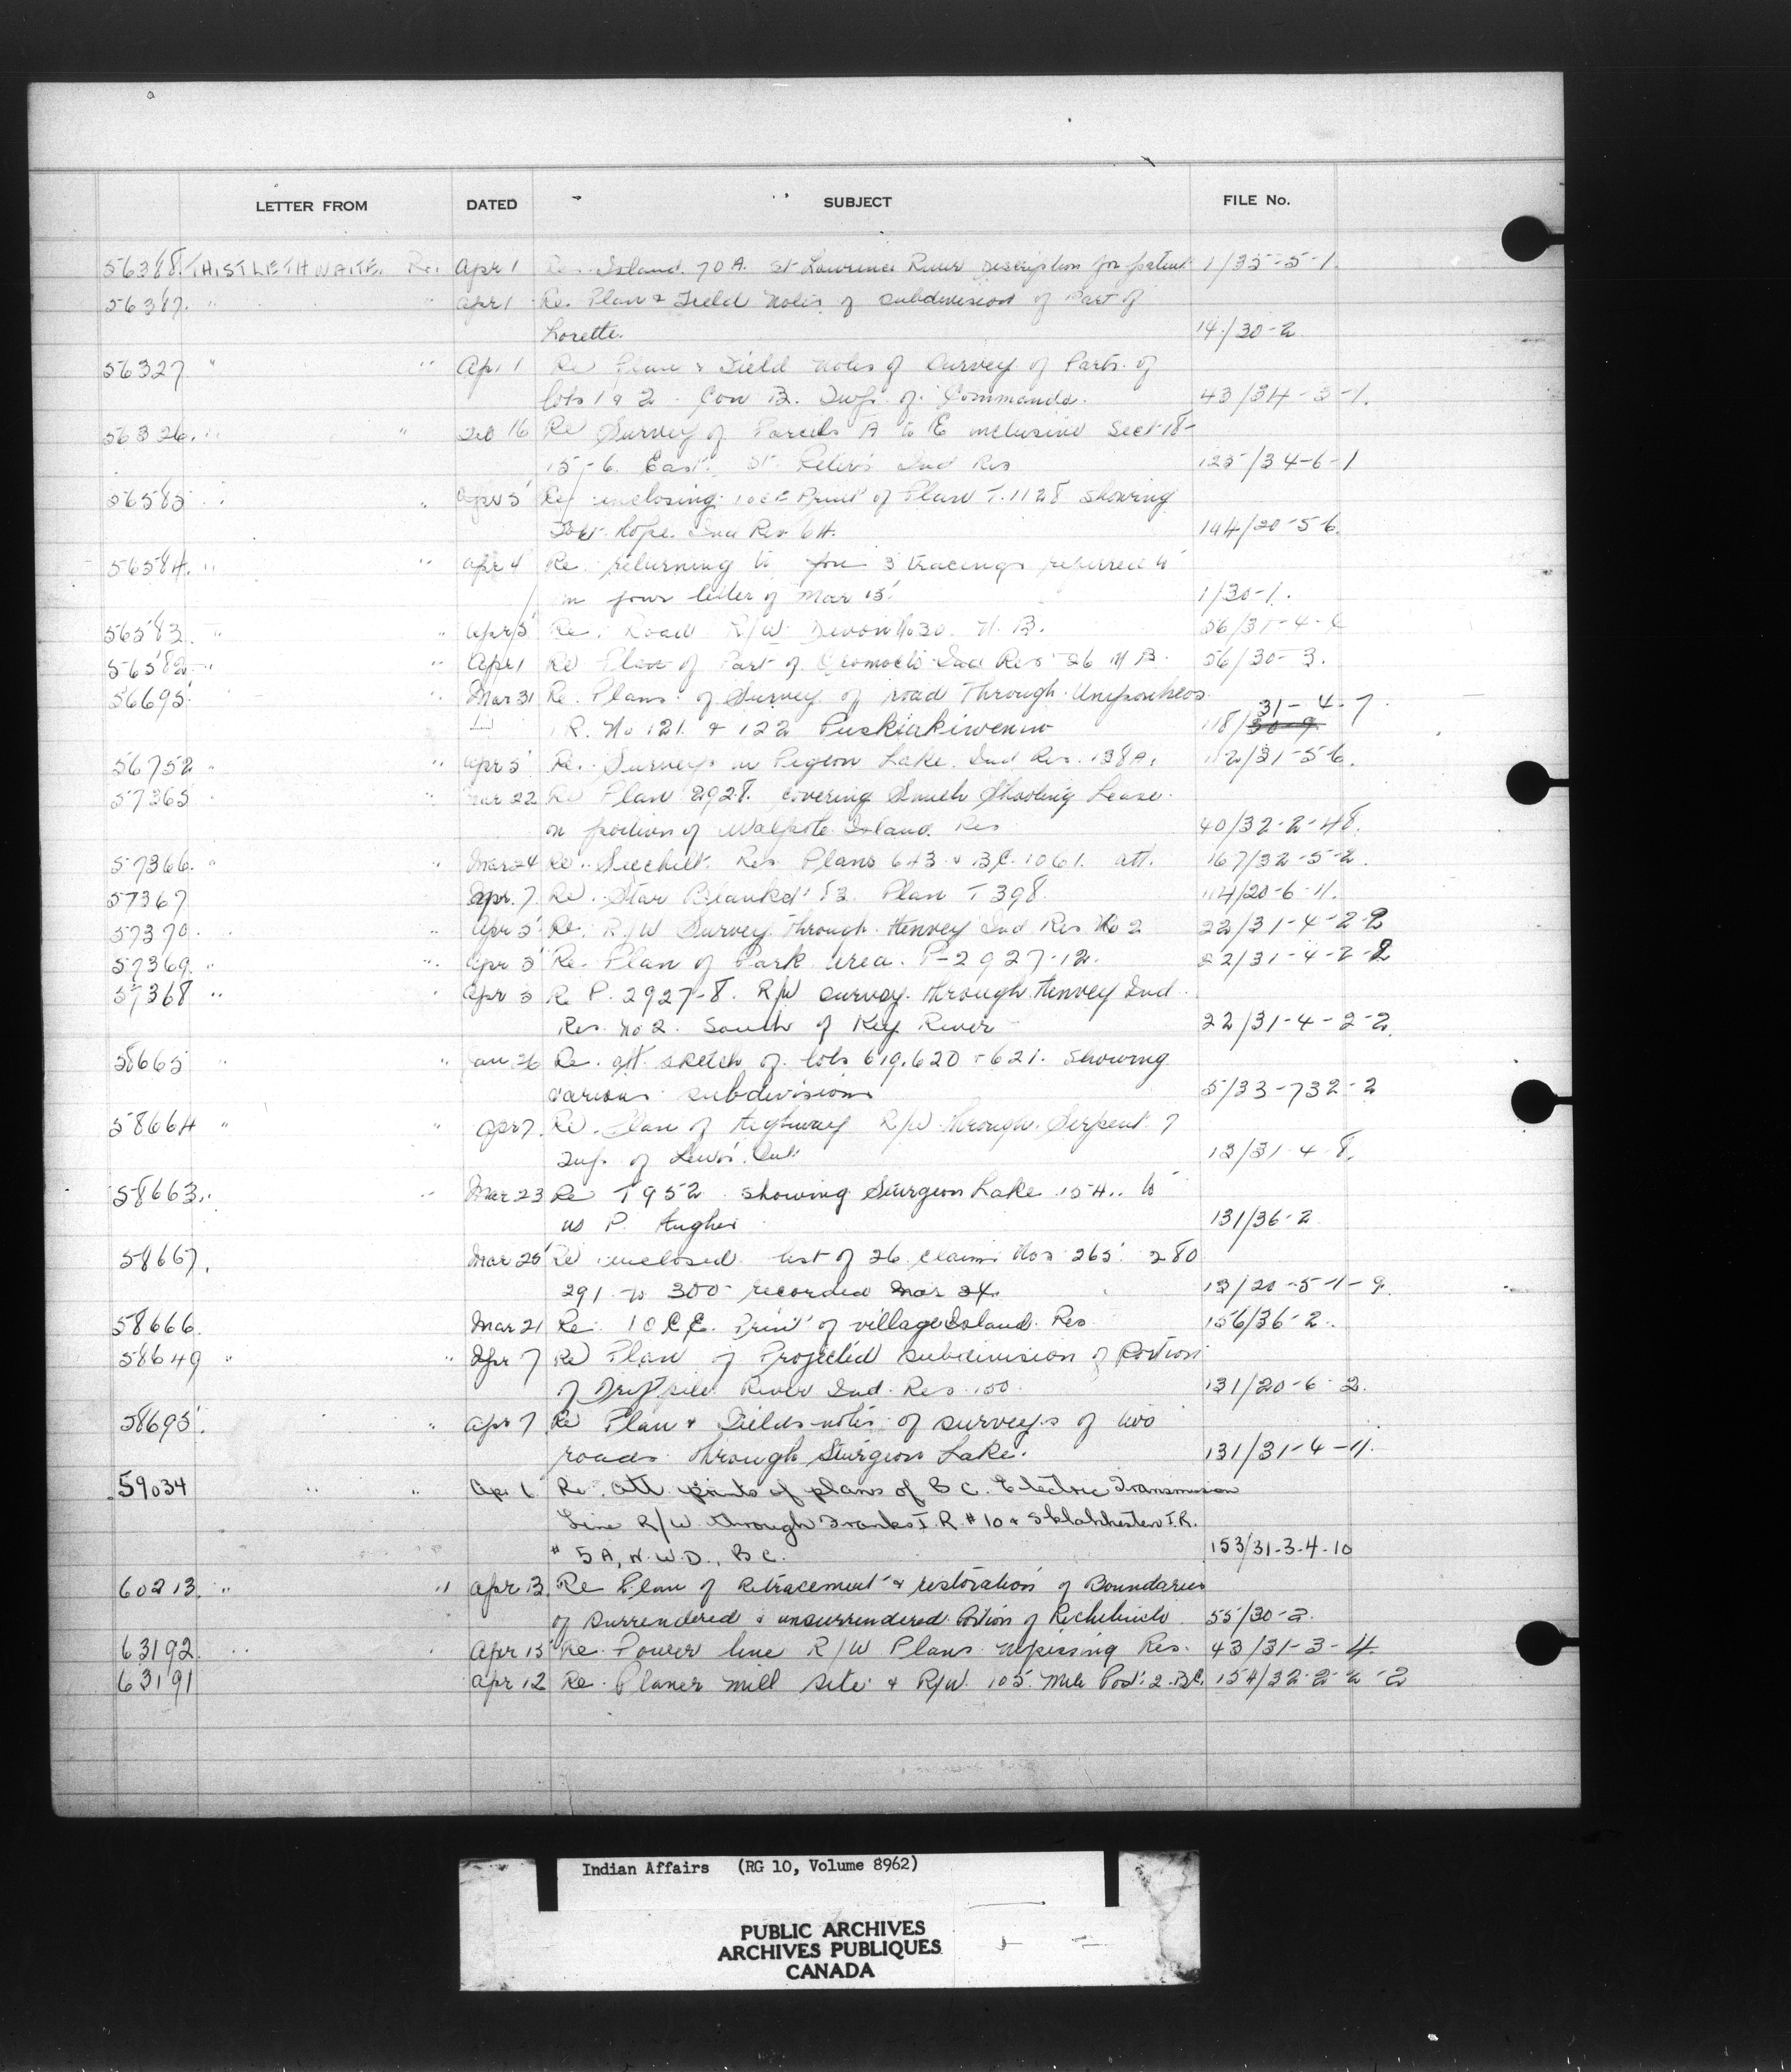 LETTER FROM DATED SUBJECT FILE No.
56388. THISTLETHWAITE. R. Apr 1 Re. Island 70 A. St Lawrence River Description for patent 1/35-5-1.
56387. " " Apr 1 Re. Plan & Field Notes of subdivision of Part of
Lorette. 14/30-2
56327 " " Apr 1 Re Plan & Field Notes of Survey of Parts of
lots 1 & 2 Con B. Twp. of Commanda. 43/34-3-1.
56326. " " Feb 16 Re Survey of Parcels A to E inclusive Sect 18-
15-6. East. St. Peter's Ind Res 125/34-6-1
56585 " " Apr 5 Re enclosing 10 C.E. Print of Plan T.1128 showing
Fort Hope. Ind Res 64. 194/20-5-6.
56584. " " Apr 4 Re. returning to you 3 tracings referred to
in your letter of Mar 15. 1/30-1.
56583. " " Apr 5 Re. Road R/W Devon No 30. N.B. 56/31-4-4
56582 " " Apr 1 Re Plan of Part of Oromocto Ind Res 26 N B. 56/30-3.
56695 " " Mar 31 Re. Plans of Survey of road Through Unipouheos
31-4-7
I.R. No 121 & 122 Puskiakiwenin 118/30-9
56752 " " Apr 5 Re. Surveys in Pigeon Lake. Ind Res. 138A. 112/31-5-6.
57365 " " Mar 22 Re Plan 2928. covering Smith Shooting Lease
on portion of Walpole Island. Res 40/32-2-48.
57366. " " Mar 24 Re. Seechelt. Res. Plans 643 & B.C. 1061. att. 167/32-5-2.
57367 Apr. 7 Re. Star Blanket 83. Plan T 398. 114/20-6-11.
57370. " Apr 5 Re. R/W Survey through Henvey Ind Res No 2 22/31-4-2-2
57369. " " Apr 5 Re. Plan of Park area. P-2927-12. 22/31-4-2-2
57368 " " Apr 5 Re P. 2927-8. R/W survey through Henvey Ind
Res. No 2. South of Key River 22/31-4-2-2.
58665 " " Jan 26 Re. att. sketch of lots 619, 620 & 621. showing
various subdivisions 5/33-732-2
58664 " " Apr 7. Re. Plan of Highway R/W through Serpent 7
Twp. of Lewis. Ont 13/31-4-8.
58663. " " Mar 23 Re T 952 showing Sturgeon Lake 154.. to
us P. Hughes 131/36-2
58667. Mar 25 Re enclosed list of 26 claims Nos 265 280
291 to 300 recorded Mar 24. 13/20-5-1-9.
58666. Mar 21 Re. 10 C.E. Print of village Island Res 156/36-2.
58649 " " Apr 7 Re Plan of Projected subdivision of Portion
of Driftpile River Ind. Res. 150. 131/20-6-2.
58695. " Apr 7 Re Plan & Fields notes of surveys of two
roads through Sturgeon Lake. 131/31-4-11.
59034 " " Apr 6 Re. att prints of plans of B C. Electric Transmission
Line R/W through Franks I.R #10 & Sklahhesten I.R.
# 5A, N.W.D., B C. 153/31-3-4-10
60213. " " Apr 13. Re Plan of Retracement & restoration of Boundaries
of surrendered & unsurrendered Portion of Richibucto 55/30-2.
63192. " " Apr 13 Re. Power line R/W Plans. Nipissing Res. 43/31-3-4.
63191 Apr 12 Re. Planer mill site & R/W. 105 Mile Post 2. B.C. 154/32-2-2-2
Indian Affairs (RG 10, Volume 8962)
PUBLIC ARCHIVES
ARCHIVES PUBLIQUES
CANADA